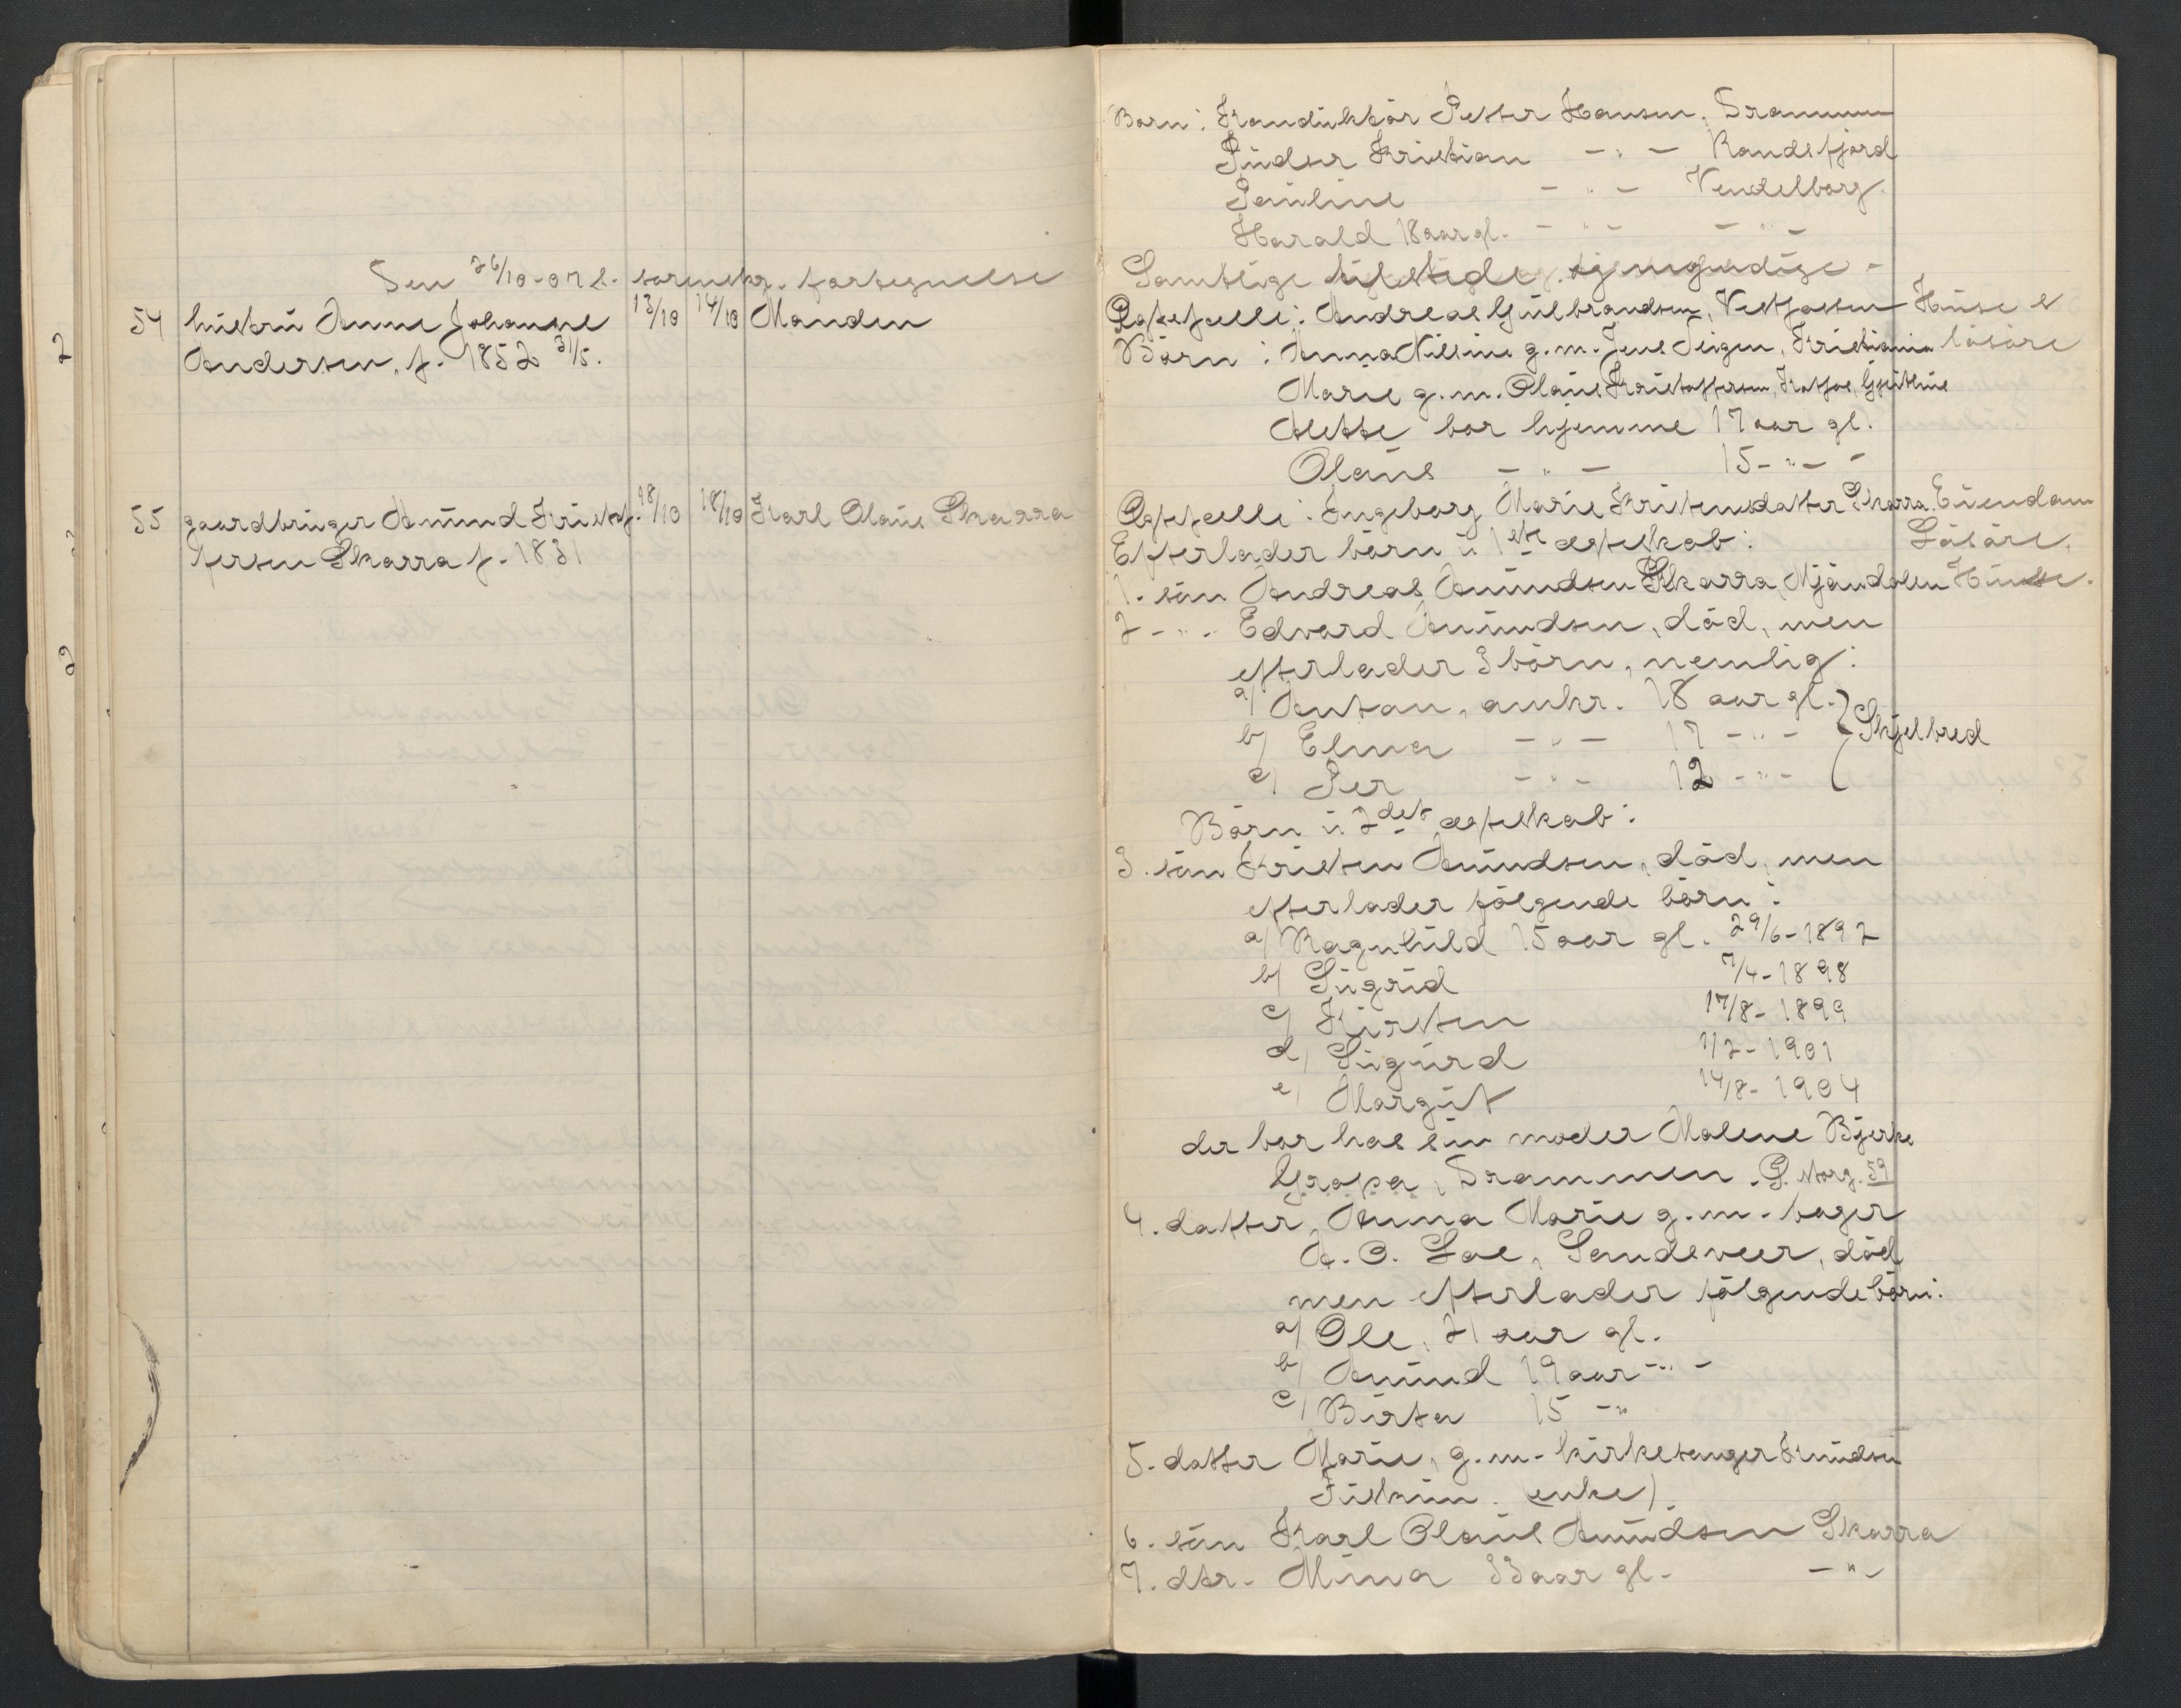 Den 26/10-07 s. sorenskr. fortegnelse
54 hustru Anne Johanne 13/10 14/10 Manden
Andersen, f. 1852 31/5.
55 gaardbruger Amund Kristof- 18/10 18/10 Karl Olaus Skarra
fersen Skarra f. 1831
Barn: Konduktør Petter Hansen, Drammen
Pudser Kristian -"- Randsfjord
Pauline -"- Vendelborg.
Harald 18 aar gl. -"- -"-
Samtlige
Egtefelle: Andreas Gulbrandsen, Vestfossen Huse &
Børn: Anna Nilsine g.m. Jens Teigen, Kristiania løsøre
Marie g.m. Olaus Kristoffersen,
Alette bor hjemme 17 aar gl.
Olaus -"- 15 -"-
Egtefelle: Ingeborg Marie Kristensdatter Skarra. Eiendom
Efterlader børn i 1ste egteskab: Løsøre,
1. søn Andreas Amundsen Skarra, Mjøndalen Huse.
2 -"- Edvard Amundsen, død, men
efterlader 3 børn, nemlig:
a/ Anton, omkr. 18 aar gl.
b/ Elma -"- 17 -"- } Skjelbred
c/ Per -"- 12 -"-
Børn i 2det egteskab:
3. søn Kristen Amundsen, død, men
efterlader følgende børn:
a/ Ragnhild 15 aar gl. 29/6-1892
b/ Sigrid 7/4-1898
c/ Kirsten 17/8-1899
d/ Sigurd 1/2-1901
e/ Margit 14/8-1904
der bor hos sin moder Malene Bjerke
Drammen. G. Storg. 59
4. datter, Anna Marie g.m. bager
A. O. Loe, Sandsveer, død
men efterlader følgende børn:
a/ Ole, 21 aar gl.
b/ Amund 19 aar -"-
c/ Birta 15 -"
5. datter Marie, g.m. kirkesanger Knudsen
Fiskum. (enke).
6. søn Karl Olaus Amundsen Skarra
7. dtr. Mina 33 aar gl. -"-